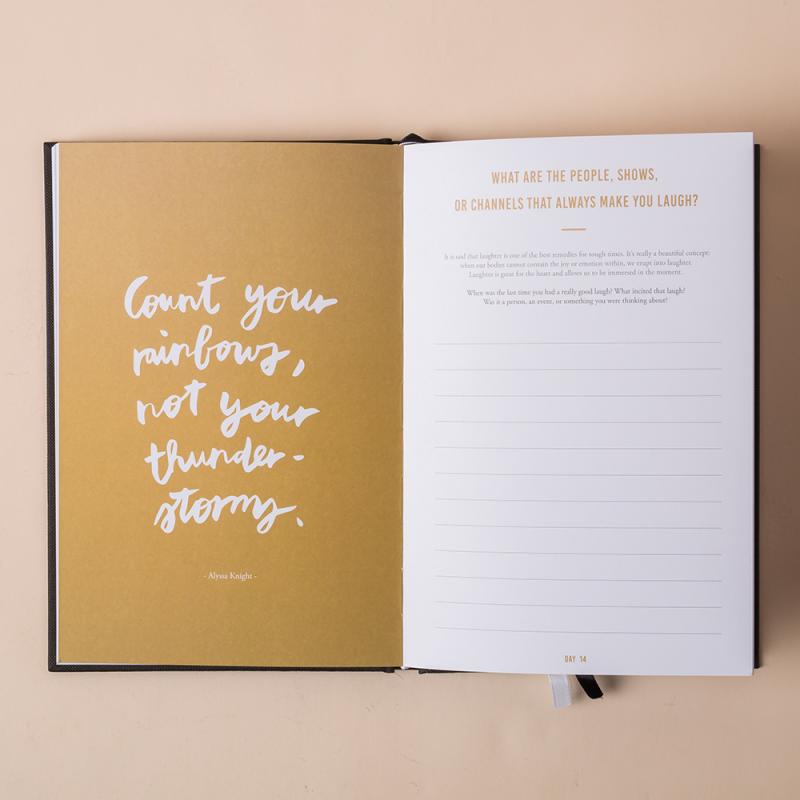 Count your
rainbows,
not your
thunder-
storms.
- Alyssa Knight -
WHAT ARE THE PEOPLE, SHOWS,
OR CHANNELS THAT ALWAYS MAKE YOU LAUGH?
It is said that laughter is one of the best remedies for tough times. It's really a beautiful concept:
when our bodies cannot contain the joy or emotion within, we erupt into laughter.
Laughter is great for the heart and allows us to be immersed in the moment.
When was the last time you had a really good laugh? What incited that laugh?
Was it a person, an event, or something you were thinking about?
DAY 14